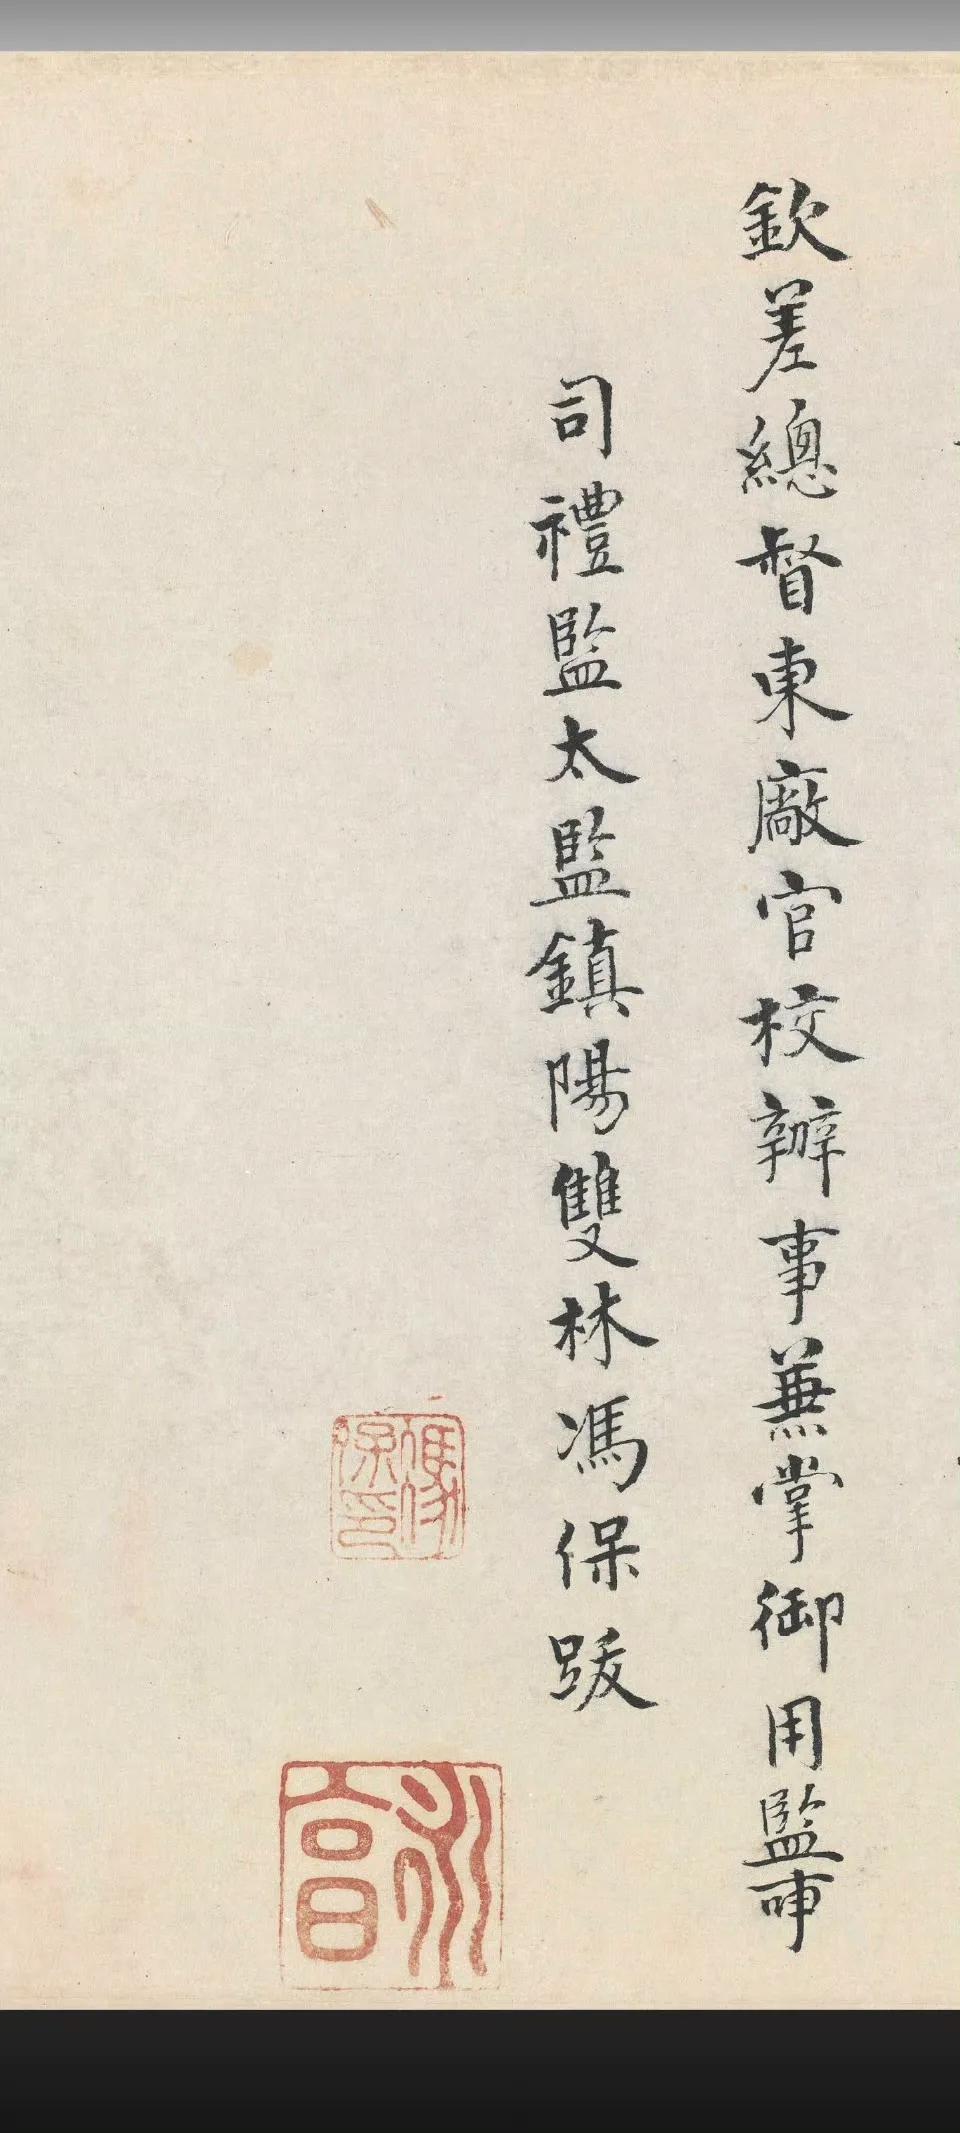 欽差總督東廠官校辦事兼掌御用監事
司禮監太監鎮陽雙林馮保跋
馮保印